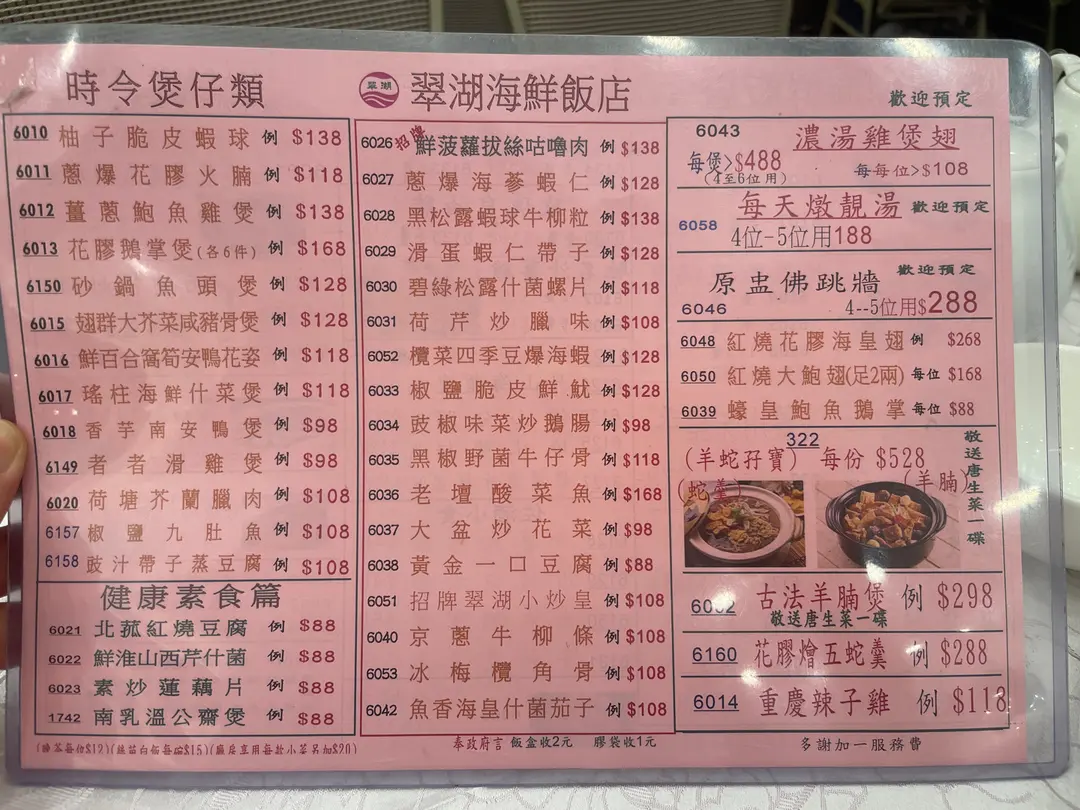 時令煲仔類
6010 柚子脆皮蝦球 例 $138
6011 蔥爆花膠火腩 例 $118
6012 薑蔥鮑魚雞煲 例 $138
6013 花膠鵝掌煲(各6件) 例 $168
6150 砂鍋魚頭煲 例 $128
6015 翅群大芥菜咸豬骨煲 例 $128
6016 鮮百合窩筍安鴨花姿 例 $118
6017 瑤柱海鮮什菜煲 例 $118
6018 香芋南安鴨煲 例 $98
6149 者者滑雞煲 例 $98
6020 荷塘芥蘭臘肉 例 $108
6157 椒鹽九肚魚 例 $108
6158 豉汁帶子蒸豆腐 例 $108
健康素食篇
6021 北菰紅燒豆腐 例 $88
6022 鮮淮山西芹什菌 例 $88
6023 素炒蓮藕片 例 $88
1742 南乳溫公齋煲 例 $88
翠湖
翠湖海鮮飯店
6026 招牌 鮮菠蘿拔絲咕嚕肉 例 $138
6027 蔥爆海參蝦仁 例 $128
6028 黑松露蝦球牛柳粒 例 $138
6029 滑蛋蝦仁帶子 例 $128
6030 碧綠松露什菌螺片 例 $118
6031 荷芹炒臘味 例 $108
6052 欖菜四季豆爆海蝦 例 $128
6033 椒鹽脆皮鮮魷 例 $128
6034 豉椒味菜炒鵝腸 例 $98
6035 黑椒野菌牛仔骨 例 $118
6036 老壇酸菜魚 例 $168
6037 大盆炒花菜 例 $98
6038 黃金一口豆腐 例 $88
6051 招牌翠湖小炒皇 例 $108
6040 京蔥牛柳條 例 $108
6053 冰梅欖角骨 例 $108
6042 魚香海皇什菌茄子 例 $108
奉政府言 飯盒收2元 膠袋收1元
歡迎預定
6043 濃湯雞煲翅
每煲>$488 每每位>$108
(4至6位用)
每天燉靚湯 歡迎預定
6058 4位-5位用188
原盅佛跳牆 歡迎預定
6046 4--5位用$288
6048 紅燒花膠海皇翅 例 $268
6050 紅燒大鮑翅(足2兩) 每位 $168
6039 蠔皇鮑魚鵝掌 每位 $88
322
(羊蛇孖寶) 每份 $528
(蛇羹) (羊腩)
敬送唐生菜一碟
古法羊腩煲 例 $298
敬送唐生菜一碟
6160 花膠燴五蛇羹 例 $288
6014 重慶辣子雞 例 $118
多謝加一服務費